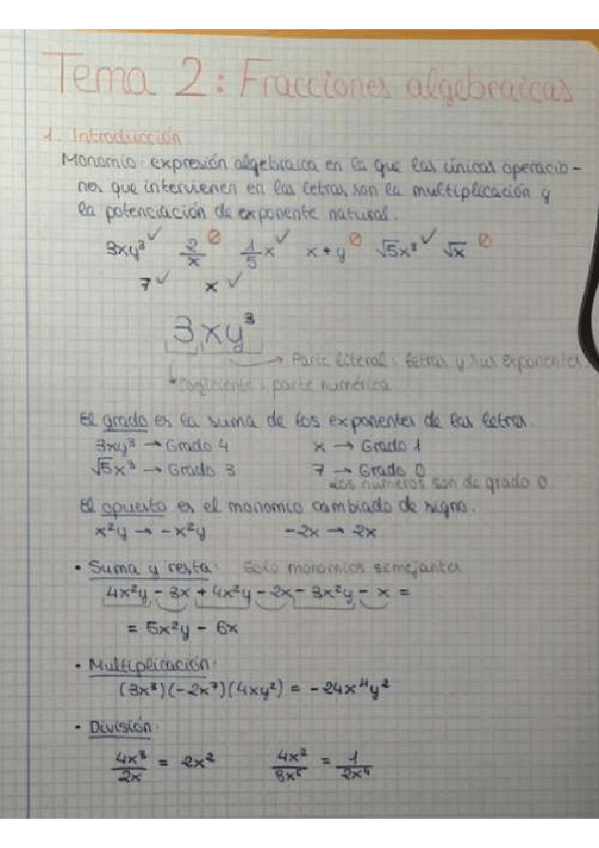 Tema 2: Fracciones algebraicas
1. Introducción
Monomio: expresión algebraica en la que las únicas operacio-
nes que intervienen en las letras son la multiplicación y
la potenciación de exponente natural.
3xy³ ✓ 2/x ∅ 1/5 x ✓ x + y ∅ √5x³ ✓ √x ∅
7 ✓ x ✓
3xy³
→ Parte literal: letras y sus exponentes
↳ Coeficiente: parte numérica
El grado es la suma de los exponentes de las letras.
3xy³ → Grado 4 x → Grado 1
√5x³ → Grado 3 7 → Grado 0
Los números son de grado 0
El opuesto es el monomio cambiado de signo.
x²y → -x²y -2x → 2x
• Suma y resta: Solo monomios semejantes
4x²y - 3x + 4x²y - 2x - 3x²y - x =
= 5x²y - 6x
• Multiplicación:
(3x³)(-2x⁷)(4xy²) = -24x¹¹y²
• División:
4x³/2x = 2x² 4x²/8x⁶ = 1/2x⁴